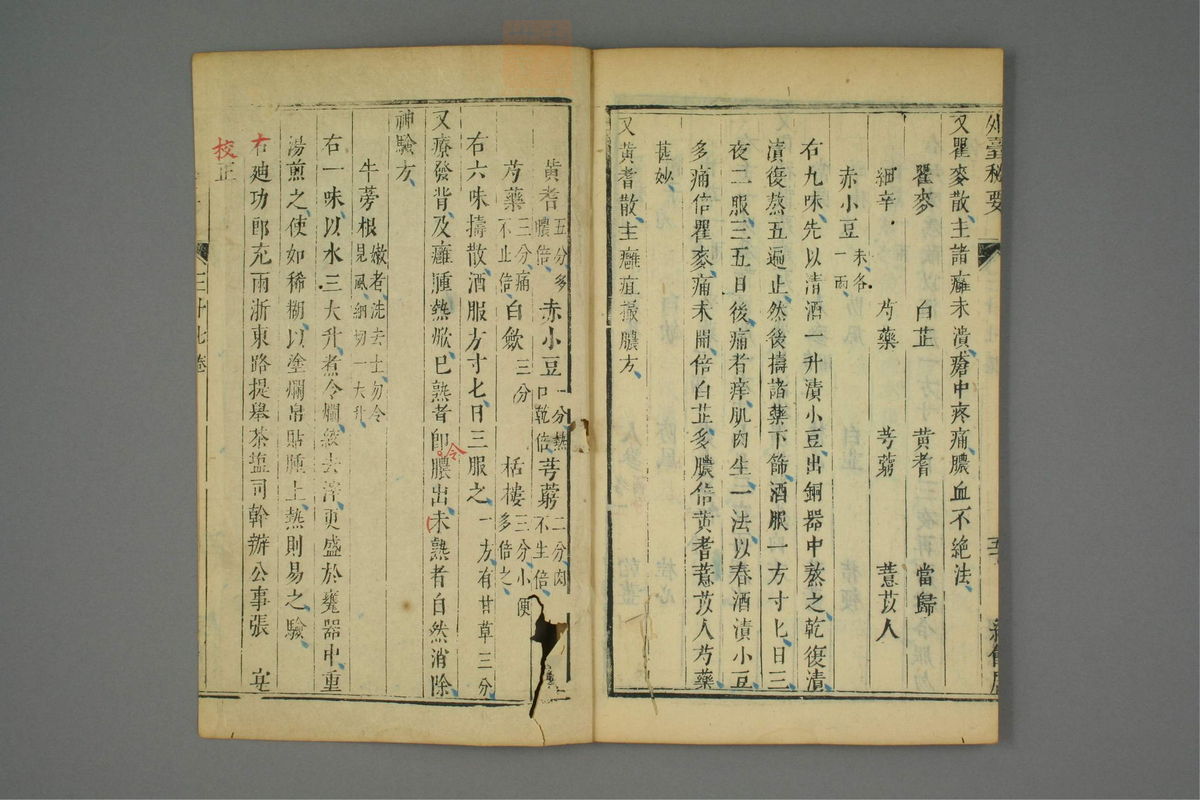 外臺秘要
又瞿麥散主諸癰未潰瘡中疼痛膿血不絶法
瞿麥 白芷 黃耆 當歸
細辛 芍藥 芎藭 薏苡人
赤小豆末各一兩
右九味先以清酒一升漬小豆出銅器中熬之乾復漬
漬復熬五遍止然後擣諸藥下篩酒服一方寸匕日三
夜二服三五日後痛者痒肌肉生一法以春酒漬小豆
多痛倍瞿麥痛未開倍白芷多膿倍黃耆薏苡人芍藥
甚妙
又黃耆散主癰疽撮膿方
黃耆五分多膿倍 赤小豆一分熱口乾倍 芎藭二分肉不生倍
芍藥三分痛不止倍 白歛三分 栝樓三分小便多倍之
右六味擣散酒服方寸匕日三服之一方有甘草三分
又療發背及癰腫熱焮已熟者即令膿出未熟者自然消除
神驗方
牛蒡根嫩者洗去土勿令見風細切一大升
右一味以水三大升煮令爛絞去滓更盛於甕器中重
湯煎之使如稀糊以塗爛帛貼腫上熱則易之驗
右廸功郎充兩浙東路提舉茶塩司幹辦公事張 寔
校正
二十七卷